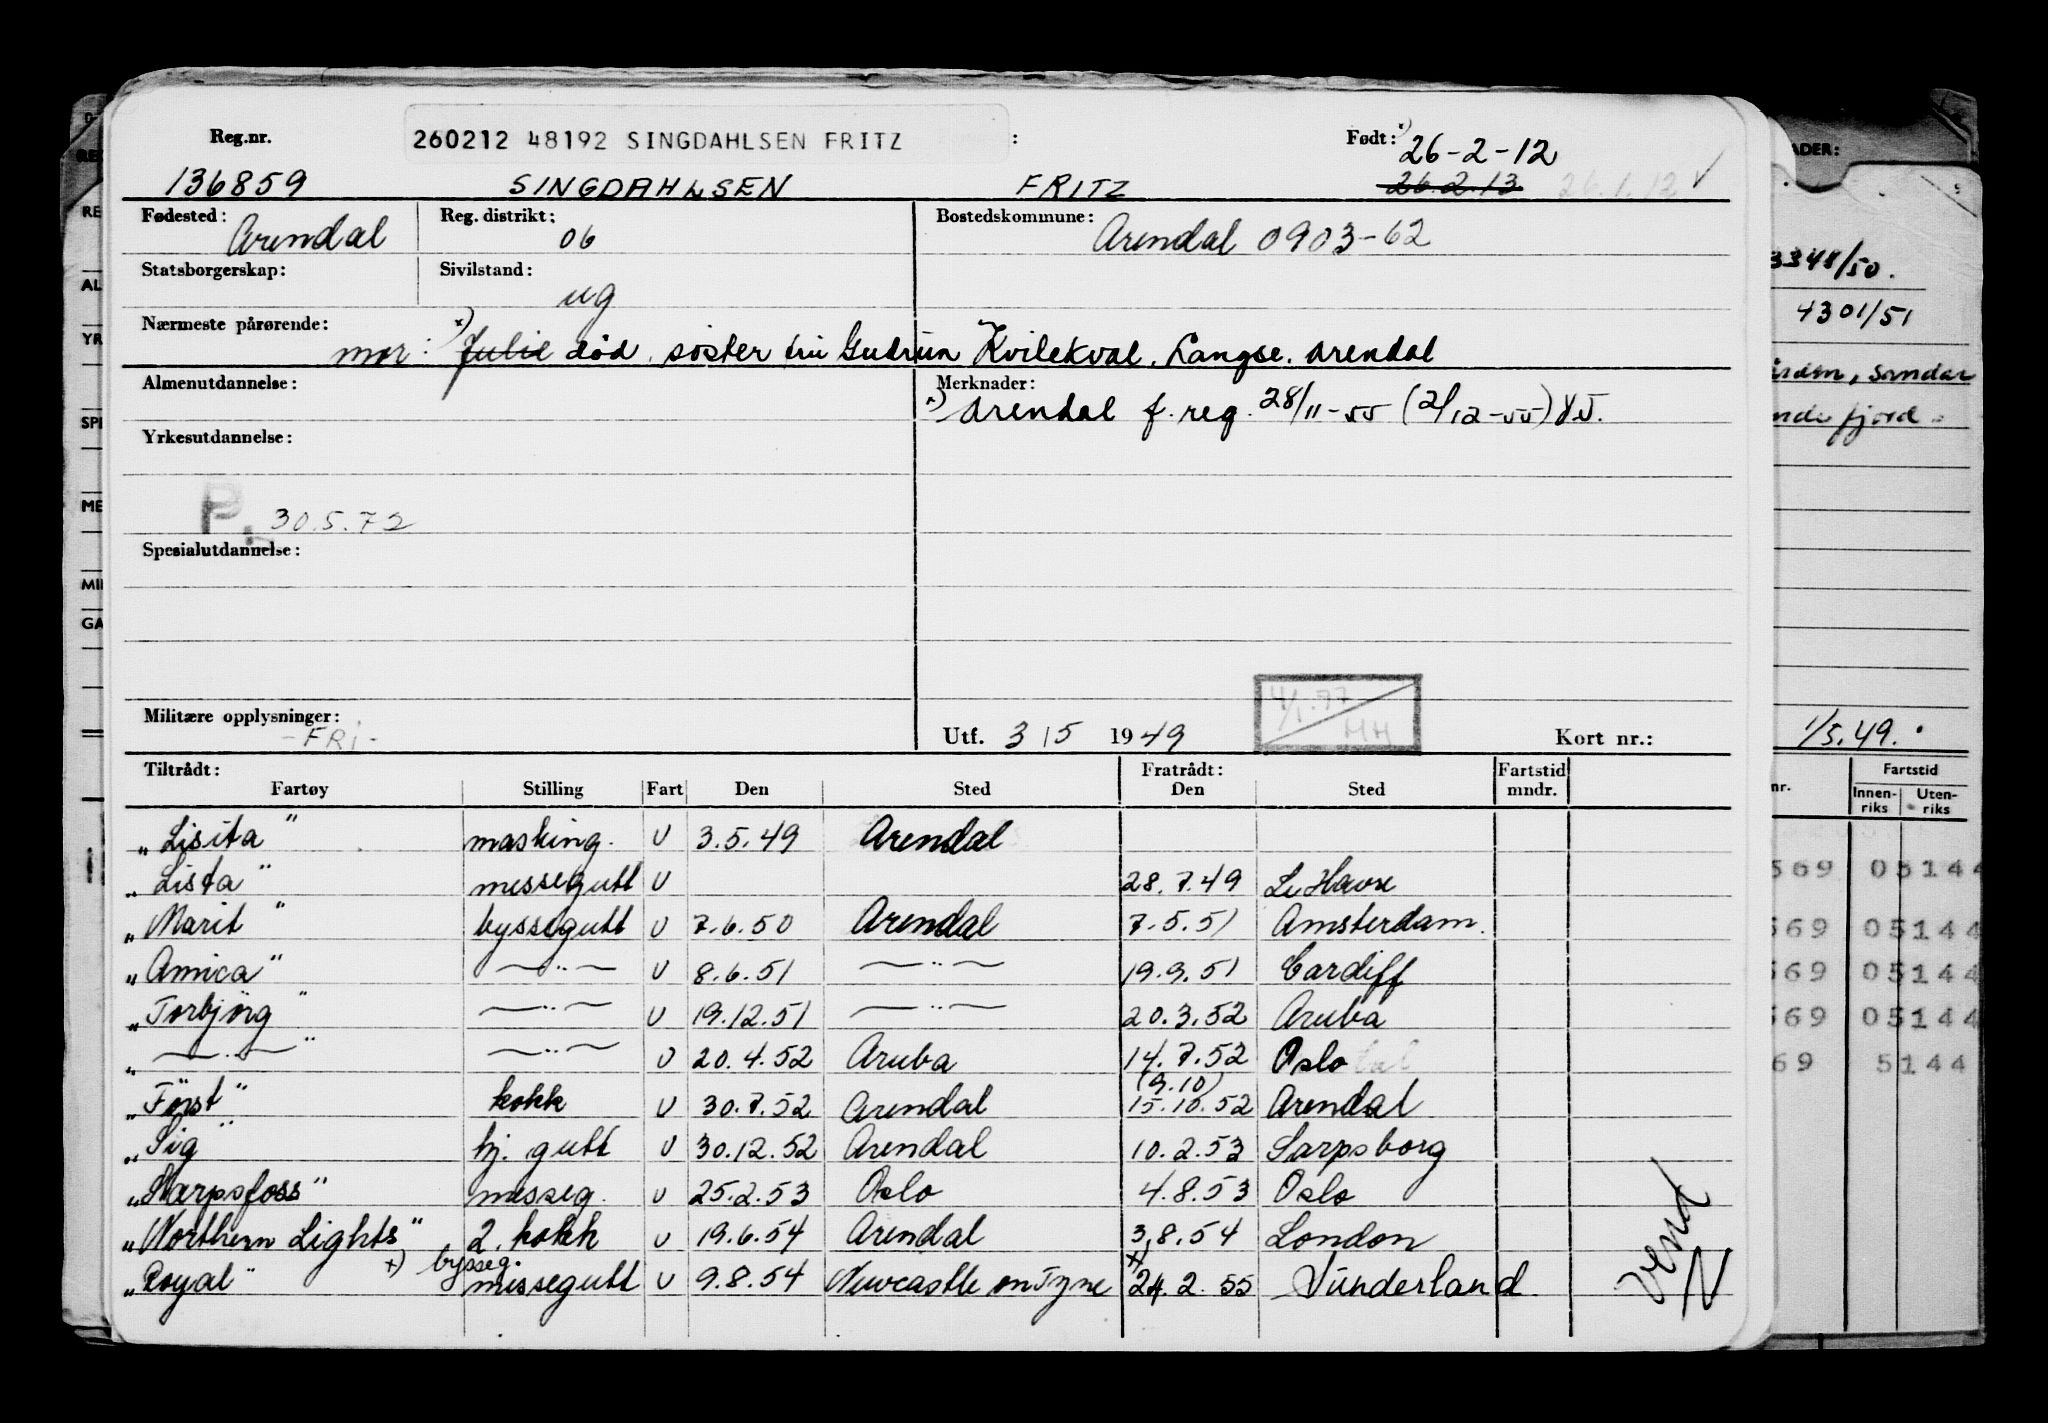 Reg.nr. 260212 48192 SINGDAHLSEN FRITZ : Født: x) 26-2-12
136859 SINGDAHLSEN FRITZ 26.2.13 26.1.12 √
Fødested: Arendal Reg. distrikt: 06 Bostedskommune: Arendal 0903-62
Statsborgerskap: Sivilstand: ug
Nærmeste pårørende: mor: x) Julie død, søster fru Gudrun Kvilekval, Langsе. Arendal
Almenutdannelse: Merknader:
x) Arendal f. reg. 28/11-55 (2/12-55)
Yrkesutdannelse:
P. 30.5.72
Spesialutdannelse:
Militære opplysninger: -FRI- Utf. 3/5 1949 4/1-77 HH Kort nr.:
Tiltrådt: Fratrådt: Fartstid
Fartøy Stilling Fart Den Sted Den Sted mndr.
„Lisita" masking. U 3.5.49 Arendal
„Lista" messegutt U 28.7.49 Le Havre
„Marit" byssegutt U 7.6.50 Arendal 7.5.51 Amsterdam.
„Amica" —〃— U 8.6.51 —〃— 19.9.51 Cardiff
„Torbjørg" —〃— U 19.12.51 —〃— 20.3.52 Aruba
„—〃—" —〃— U 20.4.52 Aruba 14.7.52 Oslo
(9.10)
„Först" kokk U 30.7.52 Arendal 15.10.52 Arendal
„Sig" hj. gutt U 30.12.52 Arendal 10.2.53 Sarpsborg
„Sarpsfoss" messeg. U 25.2.53 Oslo 4.8.53 Oslo
„Northern Lights" 2. kokk U 19.6.54 Arendal 3.8.54 London
x) bysseg. x)
„Royal" messegutt U 9.8.54 Newcastle on Tyne 24.2.55 Sunderland
Vend
N
ADER:
3348/50.
4301/51
1/5.49.
Fartstid
nr. Innen- Uten-
riks riks
569 05144
569 05144
569 05144
569 05144
69 5144
RE
AL
YR
SPE
ME
MI
GA